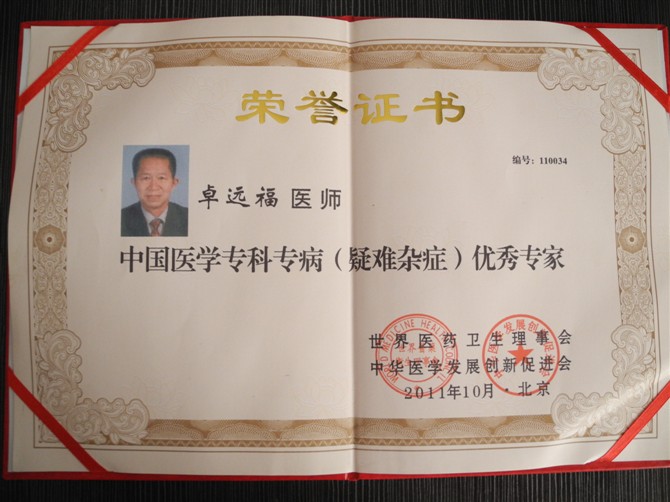 荣誉证书
编号：110034
卓远福 医师
中国医学专科专病（疑难杂症）优秀专家
世界医药卫生理事会
中华医学发展创新促进会
2011年10月·北京